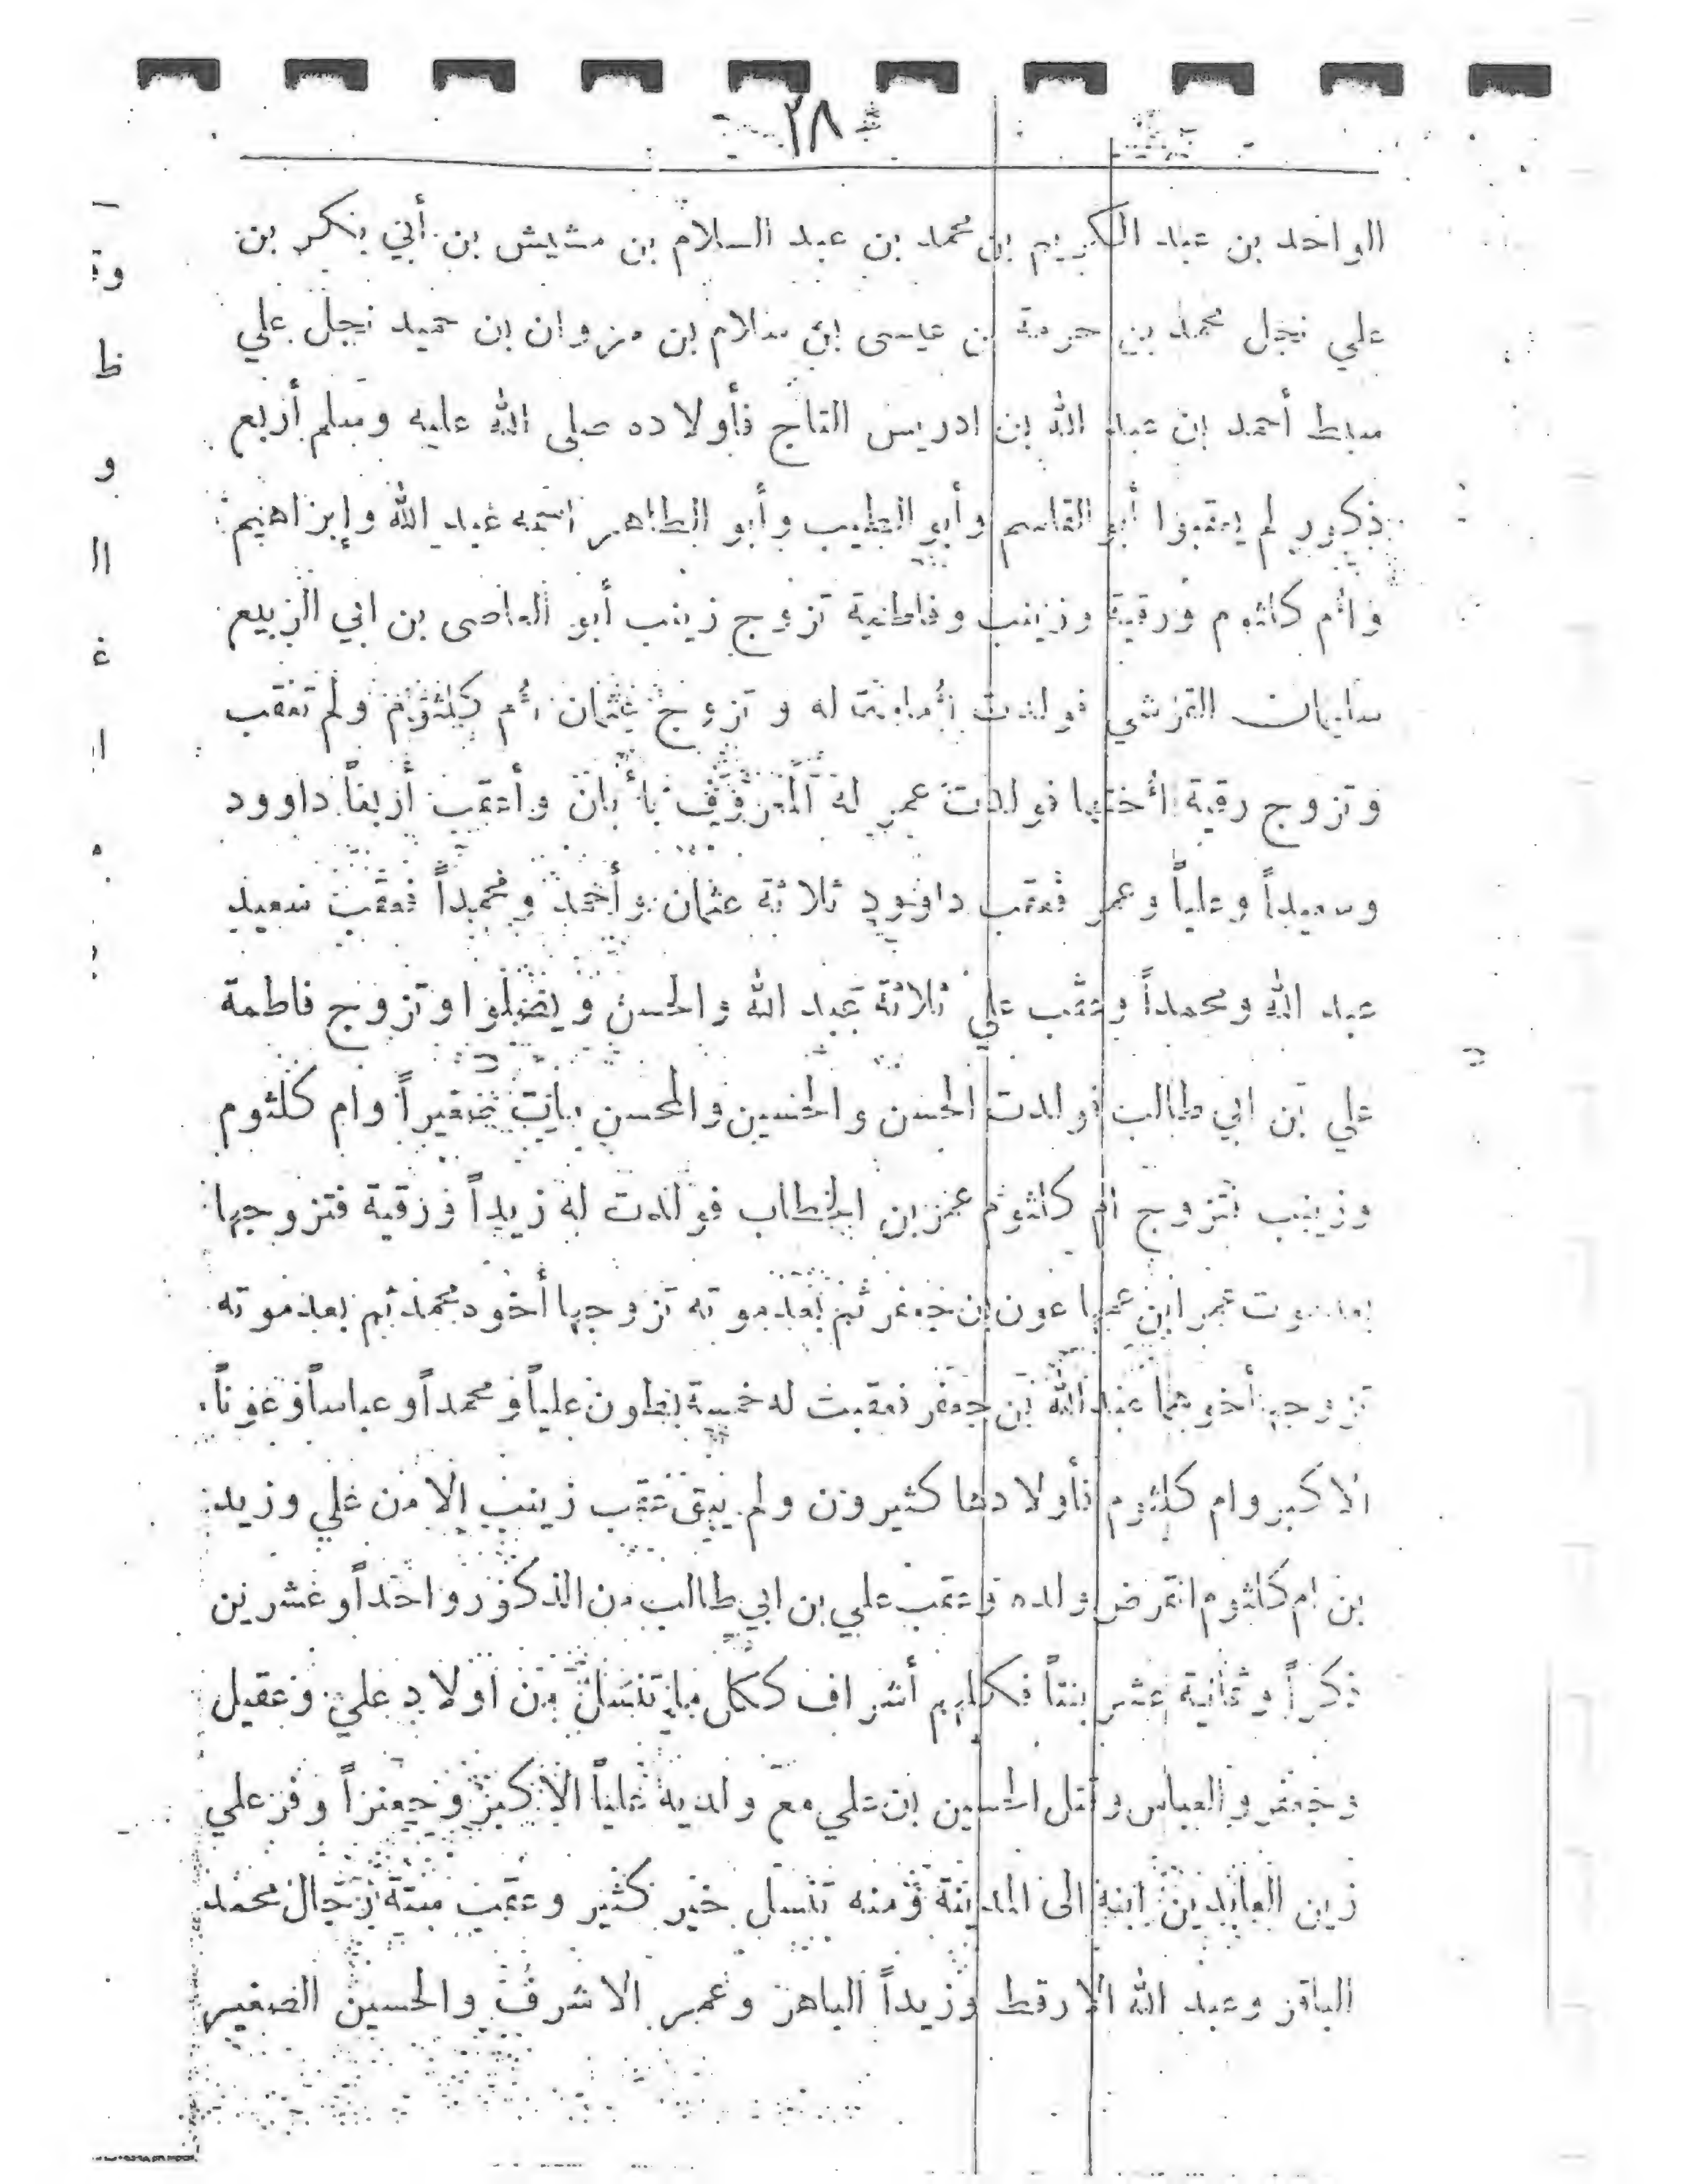 ٢٨
الواحد بن عبد الكريم بن محمد بن عبد السلام بن مشيش بن أبي بكر بن
علي نجل محمد بن حرمة بن عيسى بن سلام بن مزوان بن حميد نجل علي
سبط أحمد بن عبد الله بن ادريس التاج فأولاده صلى الله عليه وسلم أربع
ذكور لم يعقبوا أبو القاسم وأبو الطيب وأبو الطاهر اسمه عبد الله وإبراهيم
وأم كلثوم ورقية وزينب وفاطمة تزوج زينب أبو العاصى بن ابي الربيع
القرشي فولدت له و تزوج عثمان أم كلثوم ولم تعقب
وتزوج رقية أختها فولدت عمر له المعروف بأبان وأعقب أربعاً داوود
وسعيداً وعلياً وعمر فعقب داوود ثلاثة عثمان وأحمد ومحمداً فعقب سعيد
عبد الله ومحمداً وعقب علي ثلاثة عبد الله والحسن و وتزوج فاطمة
علي بن ابي طالب فولدت الحسن والحسين والمحسن صغيراً وام كلثوم
وزينب فتزوج ام كلثوم عمر بن الخطاب فولدت له زيداً ورقية فتزوجها
بعد موت عمر ابن عمها عون بن جعفر ثم بعد موته تزوجها أخوه محمد ثم بعد موته
تزوجها أخوهما عبد الله بن جعفر فعقبت له خمسة بطون علياً ومحمداً وعباساً وعوناً
الاكبر وام كلثوم فأولادها كثيرون ولم يبق عقب زينب الا من علي وزيد
بن ام كلثوم انقرض ولده وعقب علي بن ابي طالب من الذكور واحداً وعشرين
ذكراً وثمانية عشر بنتاً فكلهم أشراف ككل ما تنسل من اولاد علي وعقيل
وجعفر والعباس وقتل الحسين بن علي مع ولديه علياً الاكبر وجعفراً وفر علي
زين العابدين ابنه الى المدينة ومنه تنسل خير كثير وعقب ستة رجال محمد
الباقر وعبد الله الارقط وزيداً الباهر وعمر الاشرف والحسين الصغير